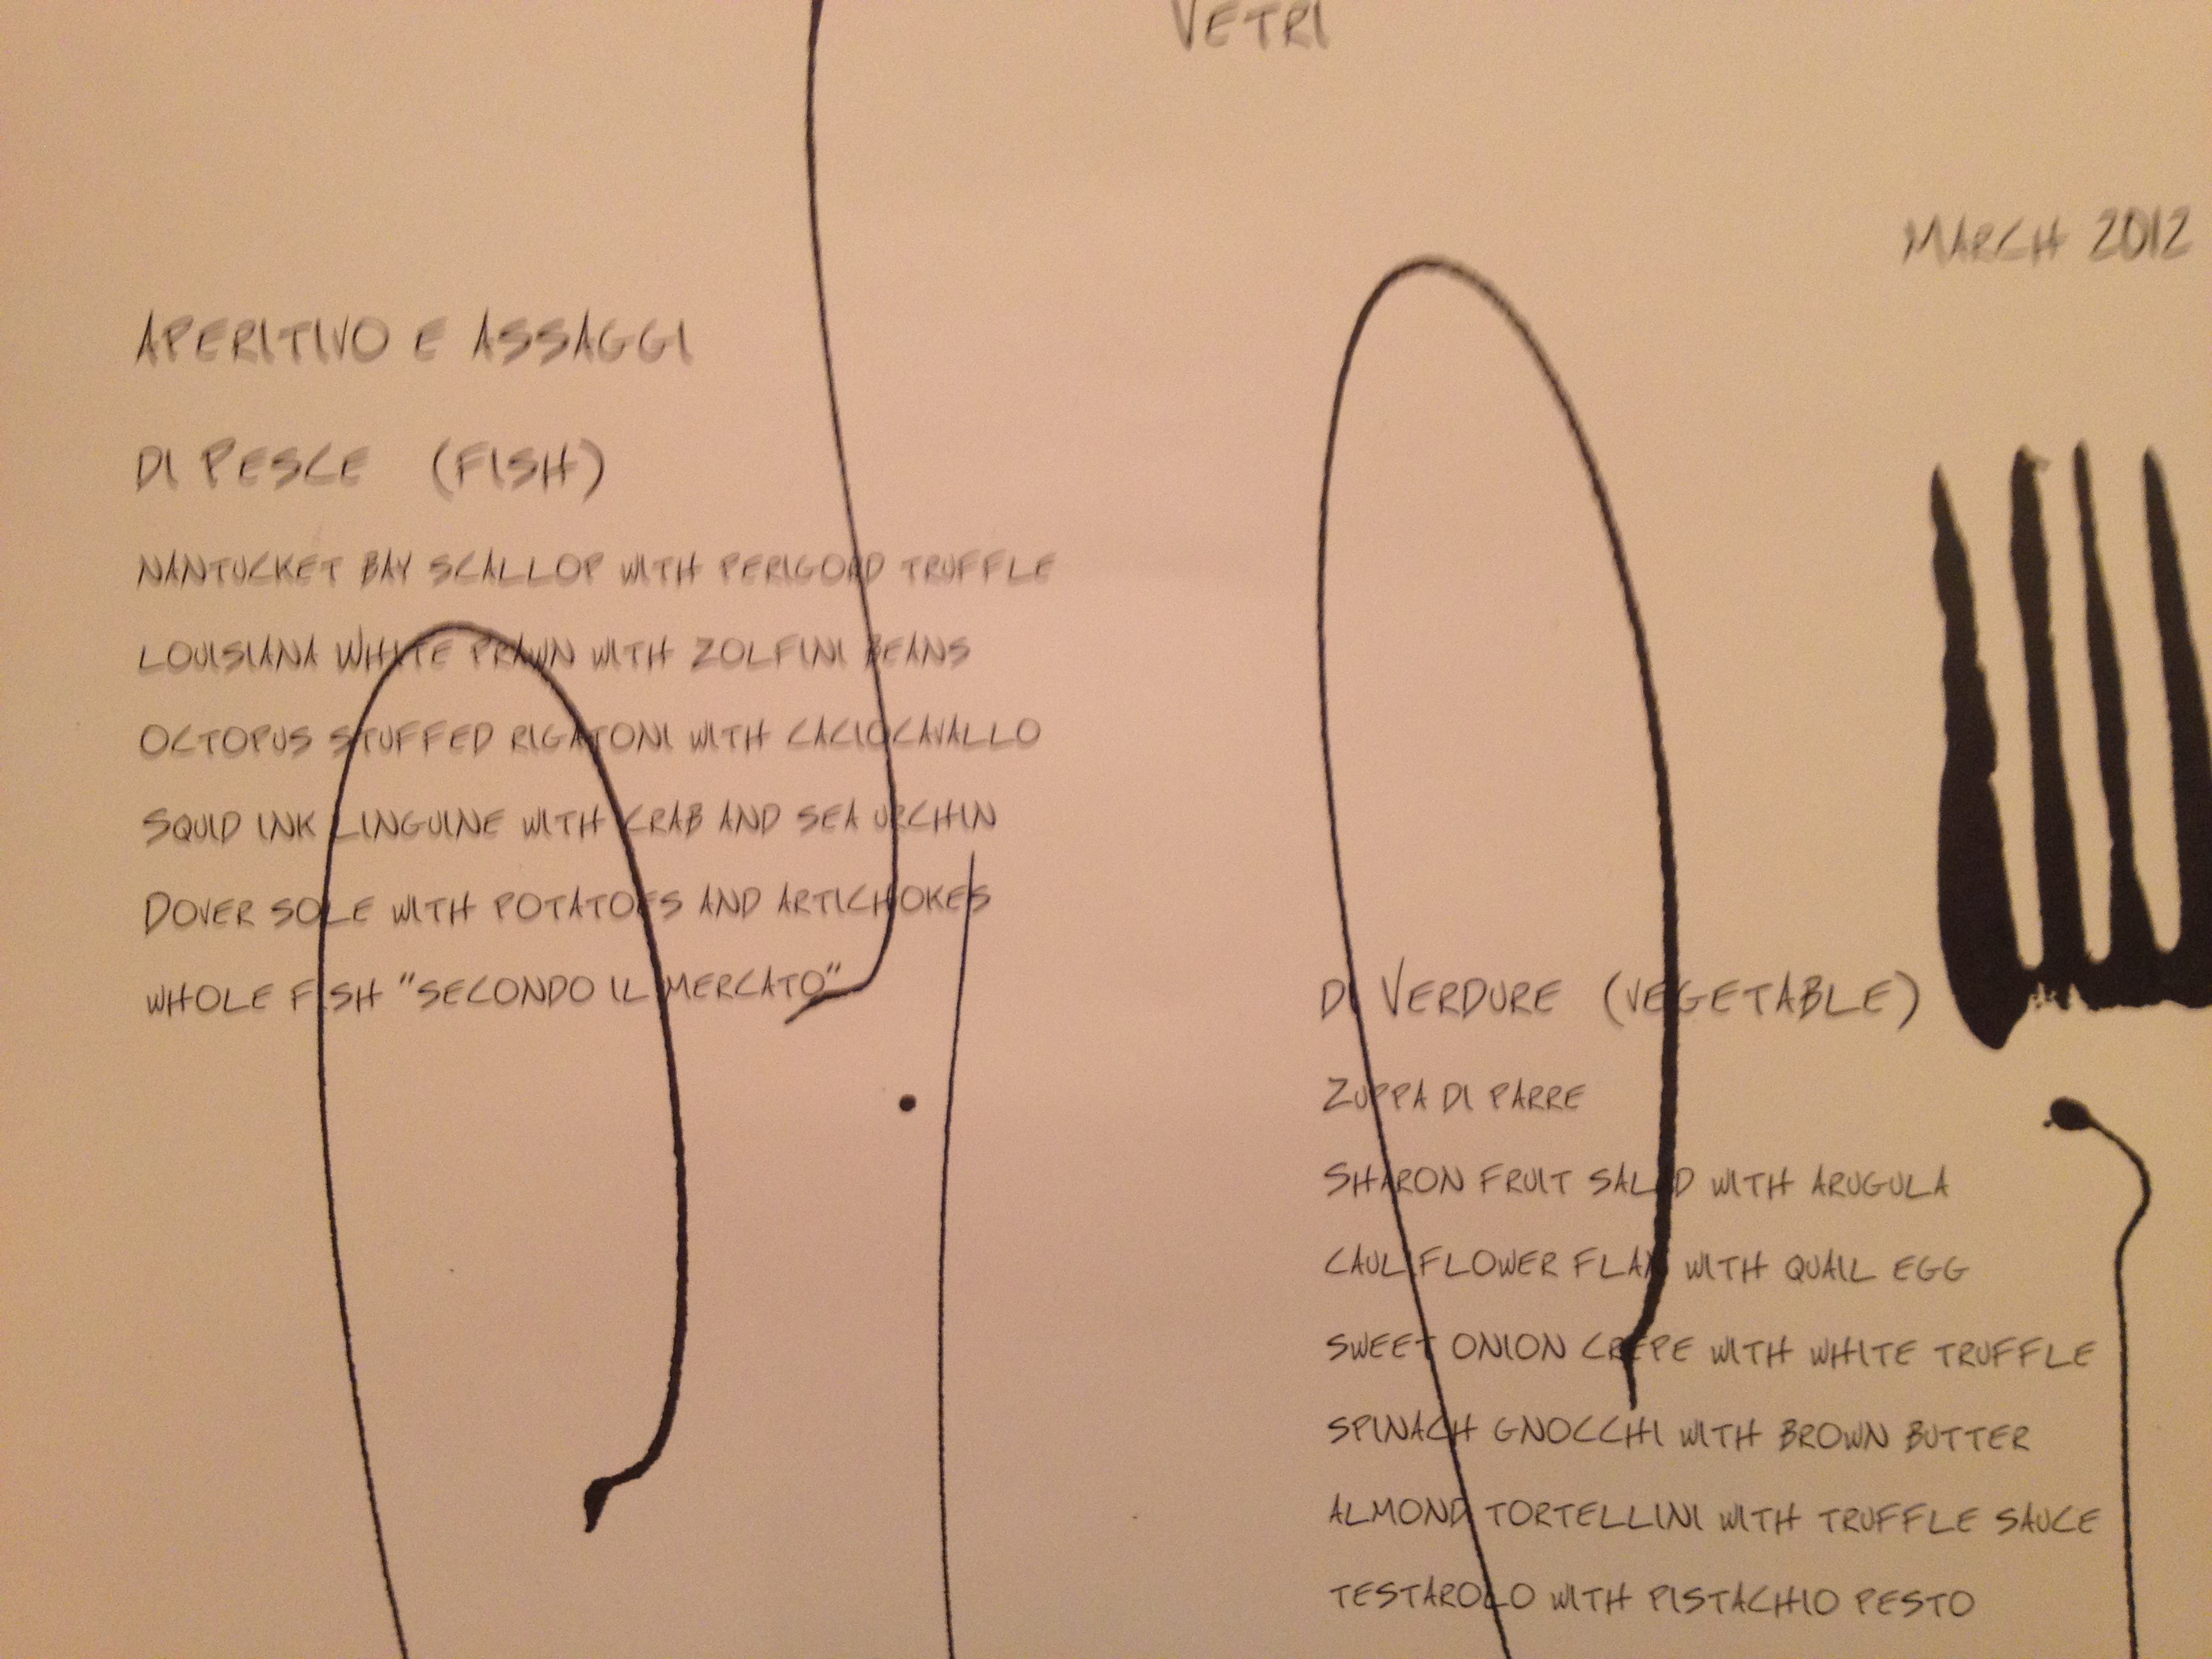 VETRI
MARCH 2012
APERITIVO E ASSAGGI
DI PESCE (FISH)
NANTUCKET BAY SCALLOP WITH PERIGORD TRUFFLE
LOUISIANA WHITE PRAWN WITH ZOLFINI BEANS
OCTOPUS STUFFED RIGATONI WITH CACIOCAVALLO
SQUID INK LINGUINE WITH CRAB AND SEA URCHIN
DOVER SOLE WITH POTATOES AND ARTICHOKES
WHOLE FISH "SECONDO IL MERCATO"
DI VERDURE (VEGETABLE)
ZUPPA DI PARRE
SHARON FRUIT SALAD WITH ARUGULA
CAULIFLOWER FLAN WITH QUAIL EGG
SWEET ONION CREPE WITH WHITE TRUFFLE
SPINACH GNOCCHI WITH BROWN BUTTER
ALMOND TORTELLINI WITH TRUFFLE SAUCE
TESTAROLO WITH PISTACHIO PESTO